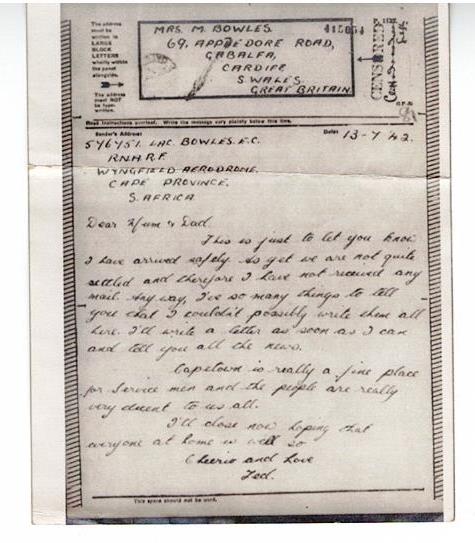 The address
must be
written in
LARGE
BLOCK
LETTERS
wholly within
the panel
alongside.
The address
must NOT
be type-
written.
MRS. M. BOWLES.
69, APPLEDORE ROAD,
GABALFA,
CARDIFF
S. WALES.
GREAT BRITAIN
CENSORED
Read instructions overleaf. Write the message very plainly below this line.
Sender's Address:
Date: 13-7 42.
576451. LAC. BOWLES. F.C.
R.N.A.R.F.
WYNGFIELD AERODROME.
CAPE PROVINCE,
S. AFRICA
Dear Mum & Dad.
This is just to let you know
I have arrived safely. As yet we are not quite
settled and therefore I have not received any
mail. Any way, I've so many things to tell
you that I couldn't possibly write them all
here. I'll write a letter as soon as I can
and tell you all the news.
Capetown is really a fine place
for Service men and the people are really
very decent to us all.
I'll close now hoping that
everyone at home is well so
Cheerio and love
Ted.
This space should not be used.